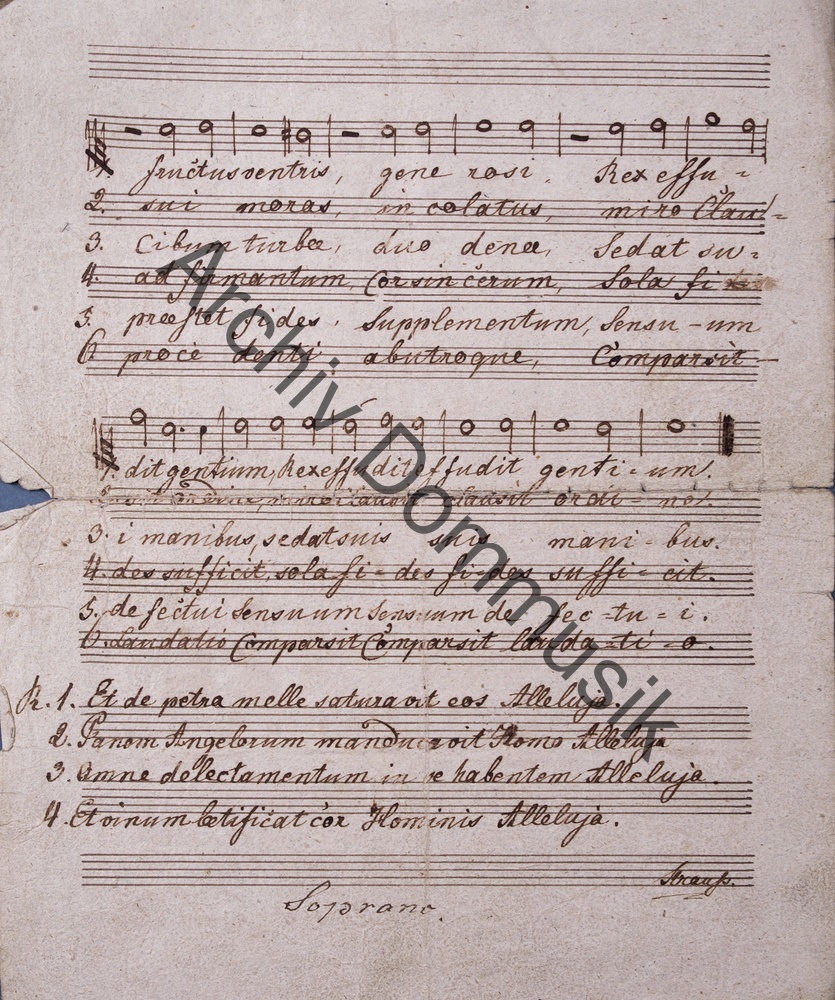 1. fructus ventris, gene rosi. Rex effu =
2. sui moras, in colatus, miro Clau =
3. Cibum turbæ, duo denæ, Sedat su =
4. ad firmantum, Cor sin cerum, Sola fi
5. præstet fides, Supplementum, Sensu - um
6 proce denti abutroque, Comparsit -
1. dit gentium, Rex effudit effudit genti = um.
clausit ordi = ne.
3. i manibus, sedat suis suis mani = bus.
4. des sufficit, sola fi = des fi = des suffi = cit.
5. de fectui Sensuum Sensuum de fec = tu = i.
6. Laudatio Comparsit Comparsit lauda = ti = o.
R. 1. Et de petra melle saturavit eos Alleluja.
2. Panem Angelorum manducavit Homo Alleluja
3. Omne delectamentum in se habentem Alleluja.
4. Et vinum lætificat cor Hominis Alleluja.
Strauß.
Soprano.
Archiv Dommusik